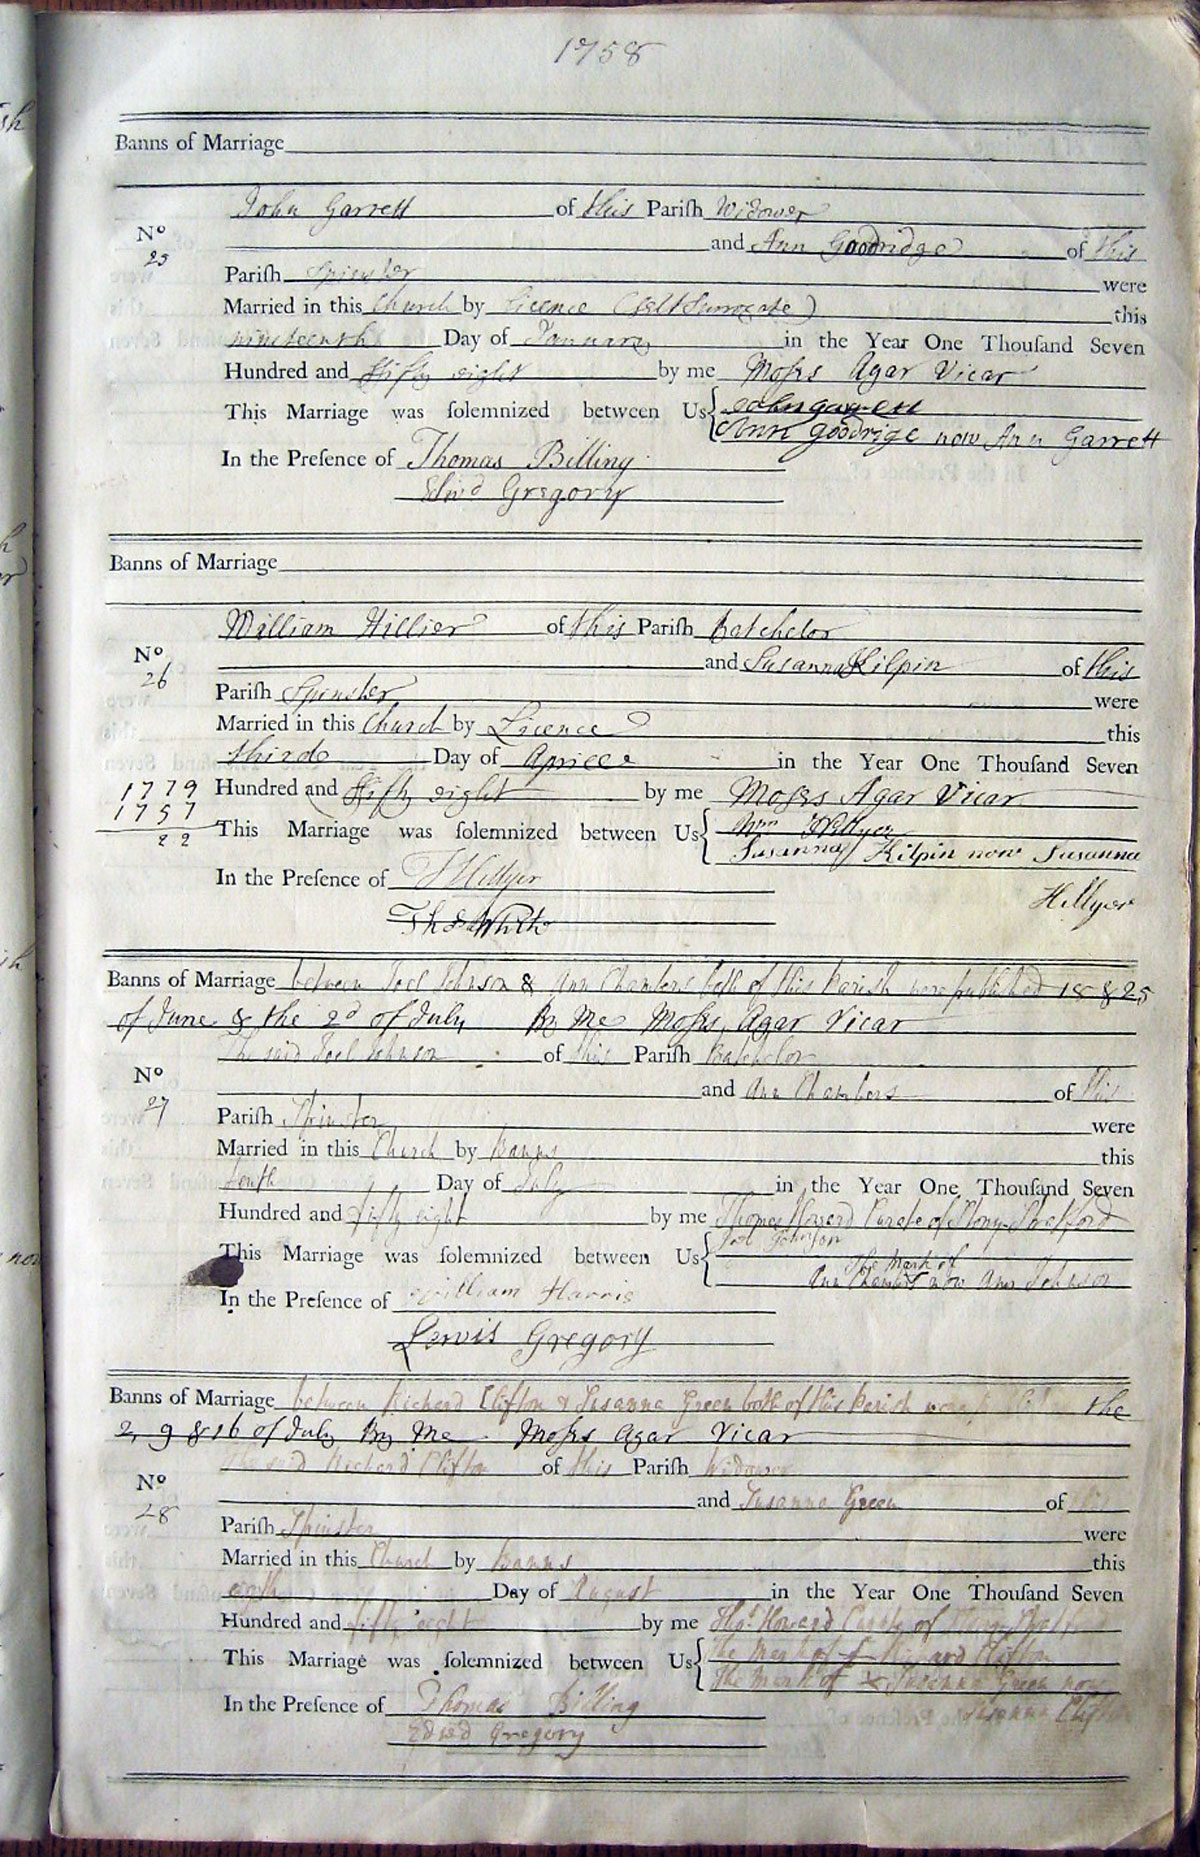 1758
Banns of Marriage
John Garrett of this Pariſh Widower
No
25
and Ann Goodridge of this
Pariſh Spinster were
Married in this Church by Licence (Self Surrogate) this
nineteenth Day of January in the Year One Thouſand Seven
Hundred and fifty eight by me Moſes Agar Vicar
This Marriage was ſolemnized between Us John Garrett
Ann Goodrige now Ann Garrett
In the Preſence of Thomas Billing
Edwd Gregory
Banns of Marriage
William Hillier of this Pariſh Batchelor
No
26
and Susanna Kilpin of this
Pariſh Spinster were
Married in this Church by Licence this
third Day of Aprill in the Year One Thouſand Seven
1779
Hundred and fifty eight by me Moſes Agar Vicar
1757
22
This Marriage was ſolemnized between Us Wm Hillyer
Susanna Kilpin now Susanna
Hillyer
In the Preſence of Hillyer
Thos White
Banns of Marriage between Joel Johnson & Ann Chambers both of this Parish were published 18 & 25
of June & the 2d of July By Me Moſes Agar Vicar
The said Joel Johnson of this Pariſh Batchelor
No
27
and Ann Chambers of this
Pariſh Spinster were
Married in this Church by Banns this
tenth Day of July in the Year One Thouſand Seven
Hundred and fifty eight by me Thomas Howard Curate of Stony Stratford
This Marriage was ſolemnized between Us Joel Johnson
The Mark of
Ann Chambers now Ann Johnson
In the Preſence of William Harris
Lewis Gregory
Banns of Marriage between Richard Clifton & Susanna Green both of this Parish were the
2, 9 & 16 of July By Me Moſes Agar Vicar
The said Richard Clifton of this Pariſh Widower
No
28
and Susanna Green of
Pariſh Spinster were
Married in this Church by Banns this
Day of August in the Year One Thouſand Seven
Hundred and fifty eight by me Thos Howard Curate of Stony Stratford
This Marriage was ſolemnized between Us The Mark of Richard Clifton
The mark of x Susanna Green now
Susanna Clifton
In the Preſence of Thomas Billing
Edwd Gregory